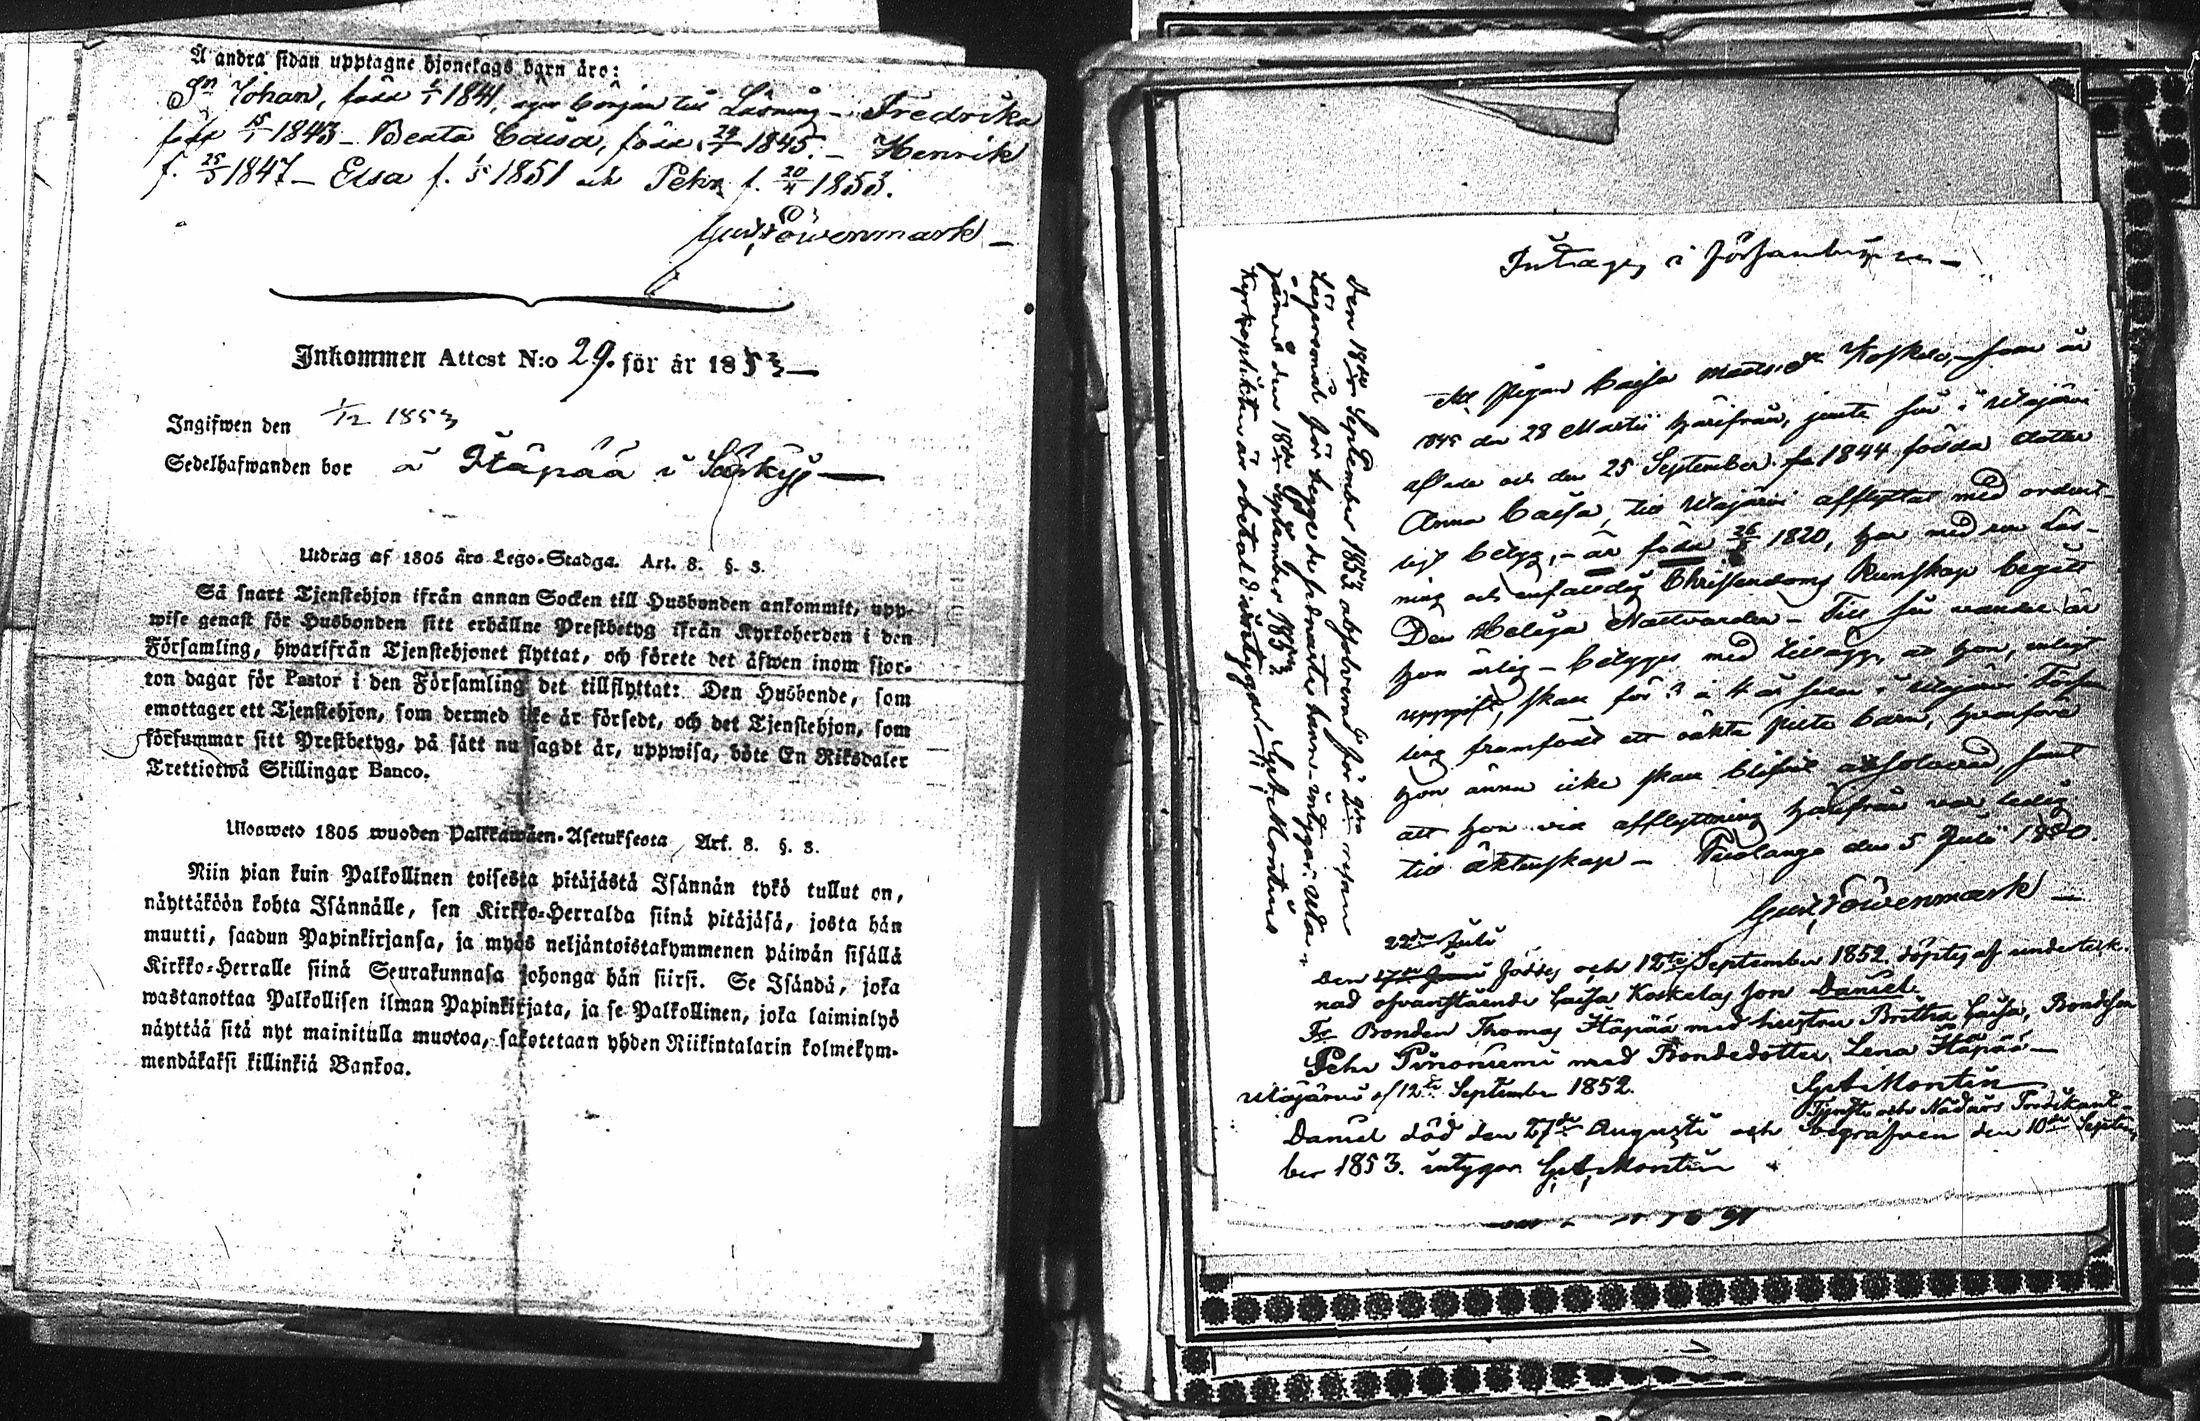 Å andra sidan upptagne hjonelags barn äro:
Sn Johan, född 1/1 1841, eger början till Läsning – Fredrika
född 15/1 1843 – Beata Caisa, född 24/7 1845. – Henrik
f. 25/5 1847 – Elsa f. 1/5 1851 och Pehr f. 20/4 1853.
Gust. Löwenmark –
Inkommen Attest N:o 29. för år 1853 –
Ingifwen den 1/12 1853
Sedelhafwanden bor å Häpää i
Utdrag af 1805 års Lego-Stadga. Art. 8. §. 3.
Så snart Tjenstehjon ifrån annan Socken till Husbonden ankommit, upp-
wise genast för Husbonden sitt erhållne Prestbetyg ifrån Kyrkoherden i den
Församling, hwarifrån Tjenstehjonet flyttat, och förete det äfwen inom fjor-
ton dagar för Pastor i den Församling det tillflyttat: Den Husbonde, som
emottager ett Tjenstehjon, som dermed icke är försedt, och det Tjenstehjon, som
försummar sitt Prestbetyg, på sätt nu sagdt är, uppwisa, böte En Riksdaler
Trettiotwå Skillingar Banco.
Ulosweto 1805 wuoden Palkkawäen-Asetuksesta, Art. 8. §. 3.
Niin pian kuin Palkollinen toisesta pitäjästä Isännän tykö tullut on,
näyttäköön kohta Isännälle, sen Kirkko-Herralda siinä pitäjäsä, josta hän
muutti, saadun Papinkirjansa, ja myös neljäntoistakymmenen päiwän sisällä
Kirkko-Herralle siinä Seurakunnasa johonga hän siirsi. Se Isändä, joka
wastanottaa Palkollisen ilman Papinkirjata, ja se Palkollinen, joka laiminlyö
näyttää sitä nyt mainitulla muotoa, sakotetaan yhden Riikintalarin kolmekym-
mendäkaksi killinkiä Bankoa.
Intages i Församlingen –
Att Pigan Caisa Matsdr Koskelo, – som är
1845 den 28 Martii härifrån, jemte sin i Uloajärvi
aflade och den 25 September 1844 födda dotter
Anna Caisa, till afflyttat med ordent-
ligt betyg, – är född 26/ 1820, har med ren Läs-
ning och enfaldig Christendoms Kunskap begått
Den Heliga Nattvarden – Till sin vandel är
hon ärlig – betygges med tillägg, at hon, enligt
uppgift, skall för 3 à 4 år sedan i Församling
framfödt ett oäkta barn, hvarföre
hon ännu icke skall blifvit absolverad, samt
att hon vid afflyttning härifrån var ledig
till äktenskap – Pudlango den 5 Julii 1850.
Gust. Löwenmark –
22dra Julii
Den 17de Junii föddes och 12te September 1852, döptes af underteck-
nad ofvanstående Caisa Koskelas son Daniel.
Fr Bonden Thomas Häpää med hustru Britha Caisa, Bondeson
Pehr med Bondedotter Lena Häpää –
12te September 1852.
G. A. Montin
Daniel död den 27de Augusti och begrafven den 10de Septem-
ber 1853. intygar G. A. Montin
Den 18de September 1853 absolverad för 2dra resan
Lägersmål för begge de födnande barn – intygar:
den 18de September 1853.
Kyrkoplikten är obetald intygar